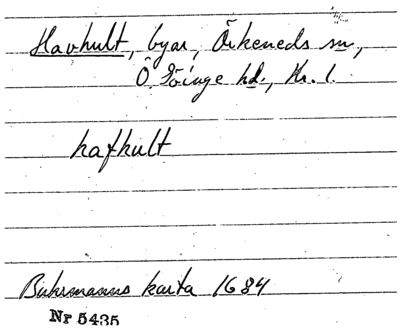 Havhult, byar, Örkeneds sn,
Ö. Göinge hd., Kr. l.
hafhult
Buhrmanns karta 1684
Nr 5435